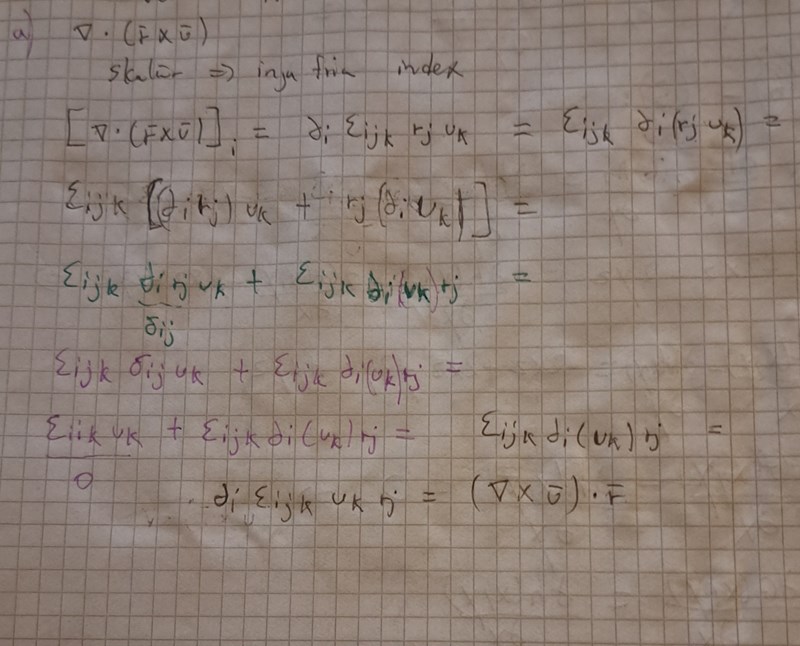 a) ∇ · (r̄ x ū)
skalär => inga fria index
[∇ · (r̄ x ū)]ᵢ = ∂i εijk rj uk = εijk ∂i (rj uk) =
εijk [(∂i rj) uk + rj (∂i uk)] =
εijk ∂i rj uk + εijk ∂i (uk) rj =
δij
εijk δij uk + εijk ∂i (uk) rj =
εiik uk + εijk ∂i (uk) rj = εijk ∂i (uk) rj =
0
∂i εijk uk rj = (∇ x ū) · r̄